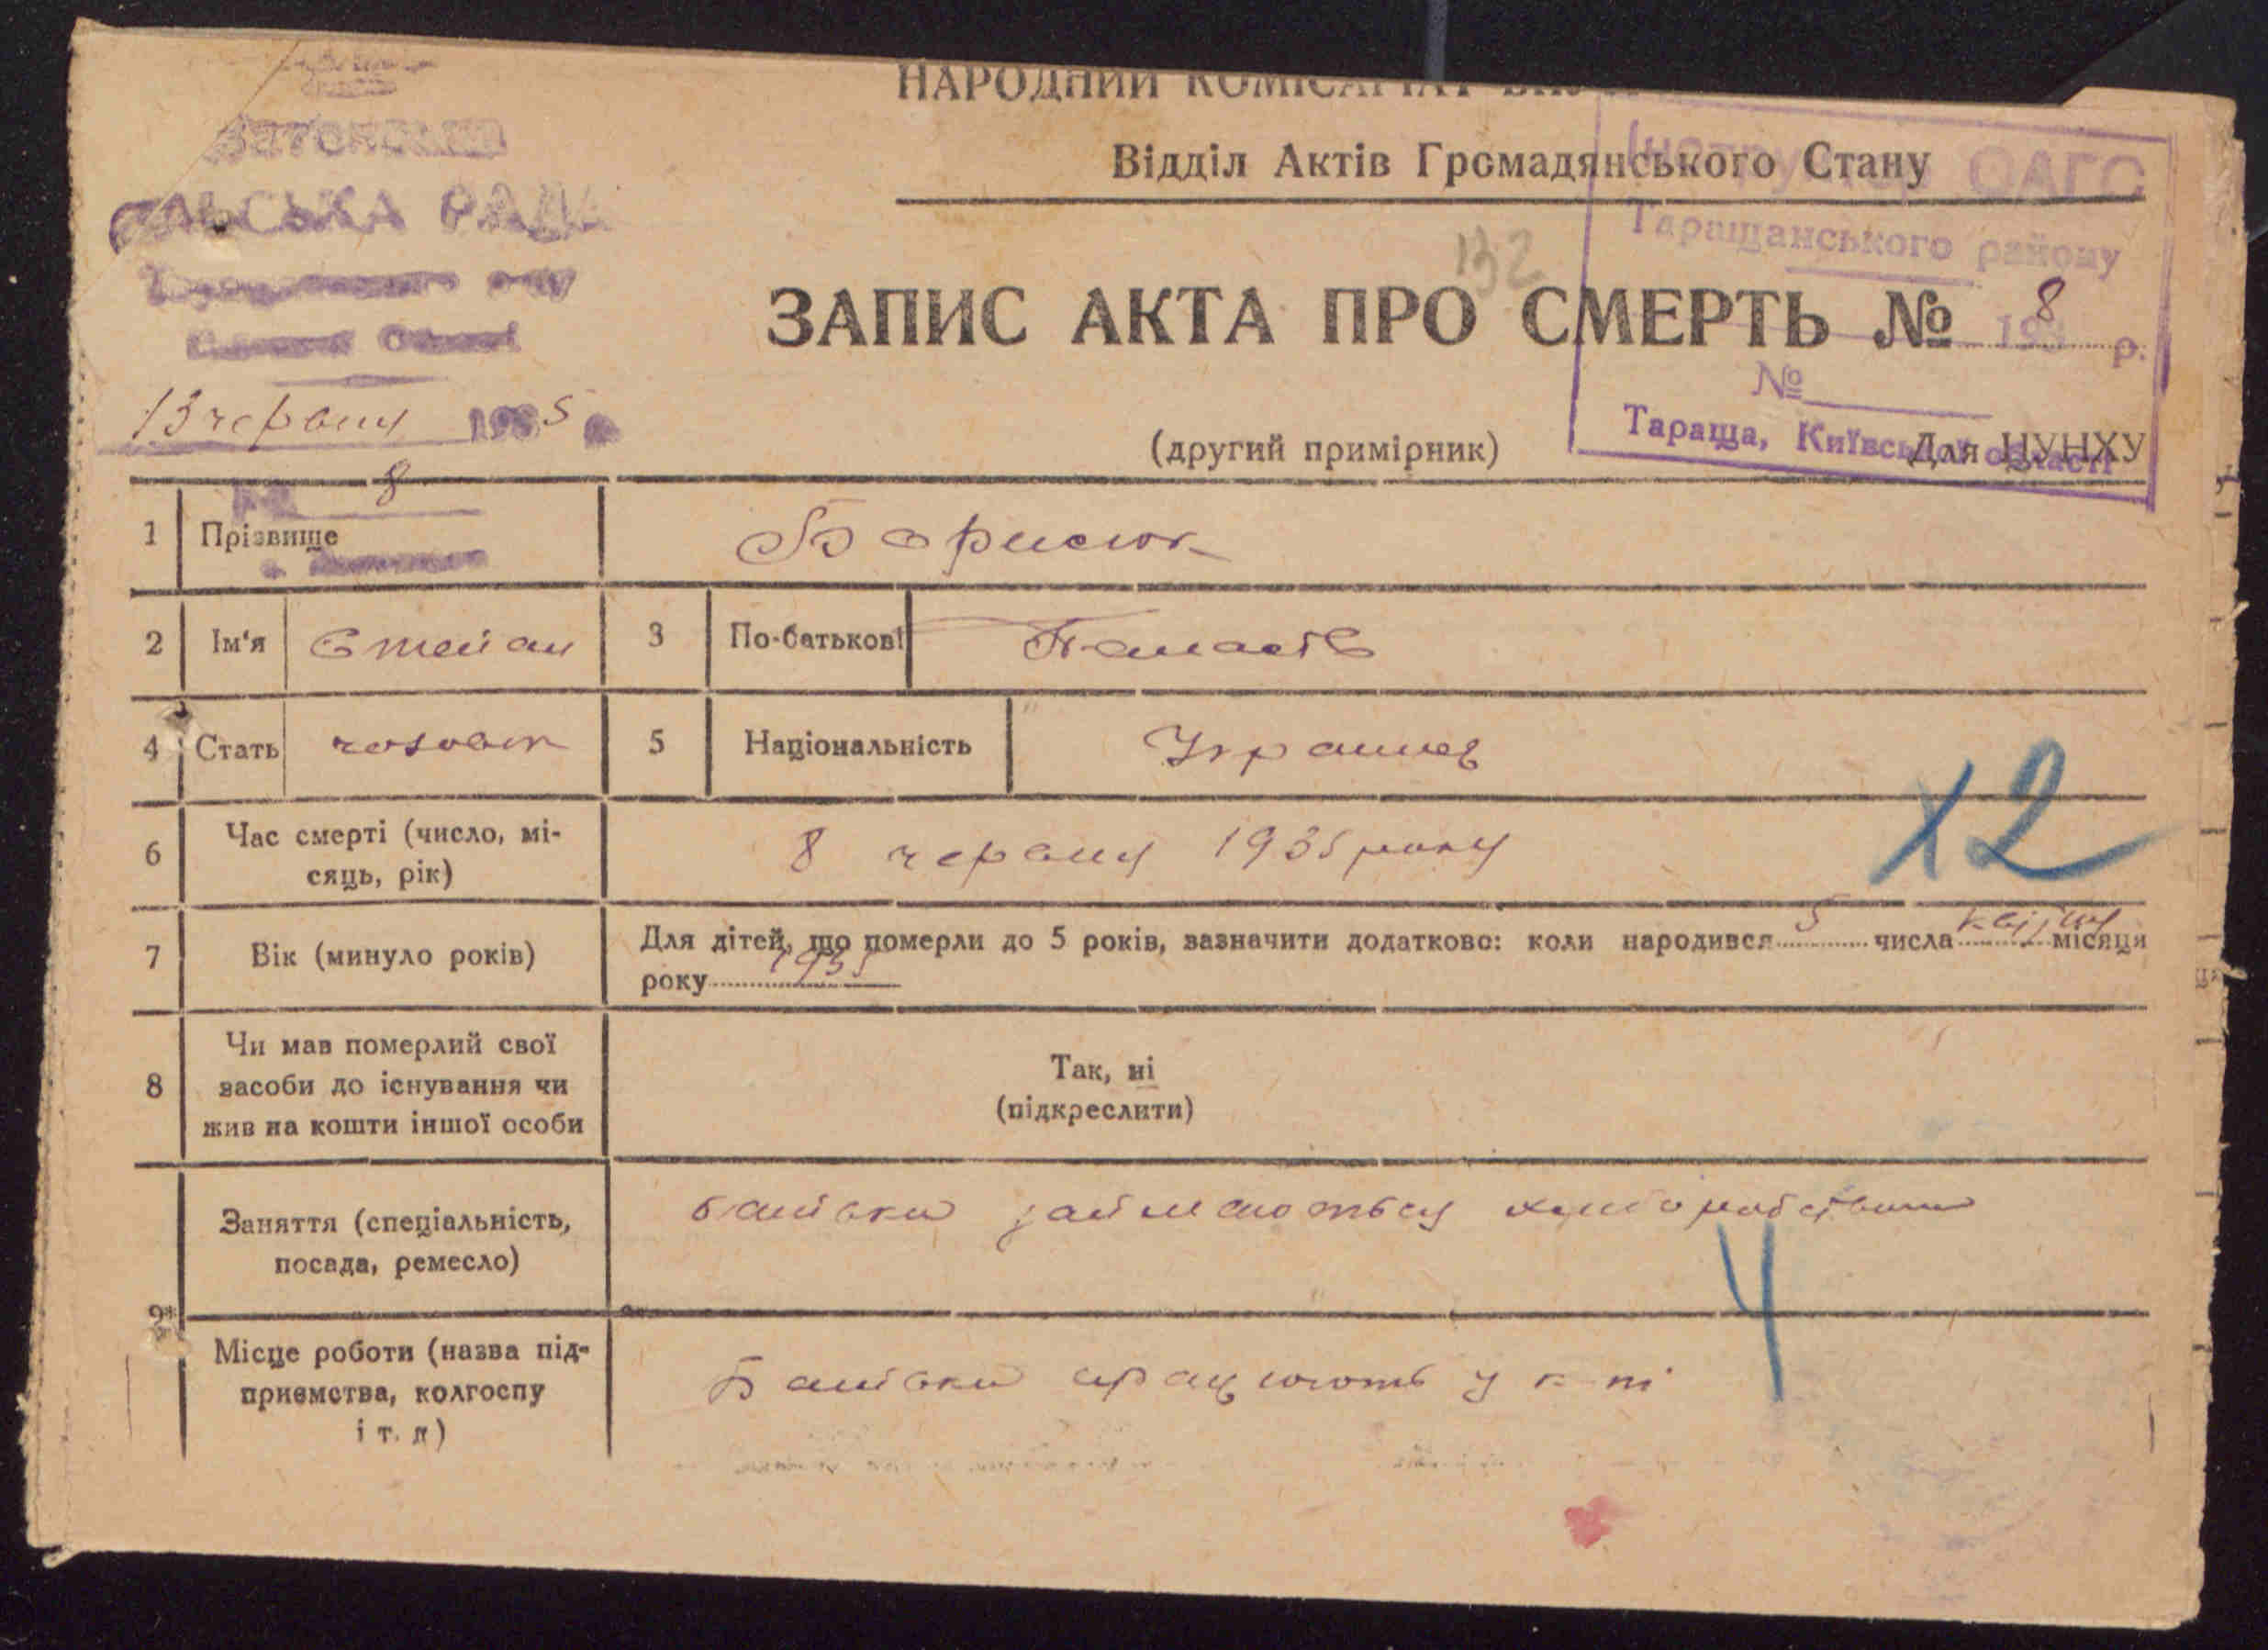 НАРОДНИЙ КОМІСАРІАТ
Відділ Актів Громадянського Стану
СІЛЬСЬКА РАДА
ОАГС
Таращанського району
132
ЗАПИС АКТА ПРО СМЕРТЬ № 8
193 р.
№
13 червня 1935
Тараща, Київської області
(другий примірник)
Для ЦУНХУ
№ 8
1 Прізвище Борисюк
2 Ім'я Степан 3 По-батькові Панасів
4 Стать чоловік 5 Національність Українец
6 Час смерті (число, мі-
сяць, рік) 8 червня 1935 року
х2
7 Вік (минуло років) Для дітей, що померли до 5 років, зазначити додатково: коли народився 5 числа квітня місяця
року 1935
8 Чи мав померлий свої
засоби до існування чи
жив на кошти іншої особи
Так, ні
(підкреслити)
9* Заняття (спеціальність,
посада, ремесло) батьки займаються хліборобством
4
Місце роботи (назва під-
приємства, колгоспу
і т. д) Батьки працюють у к-пі